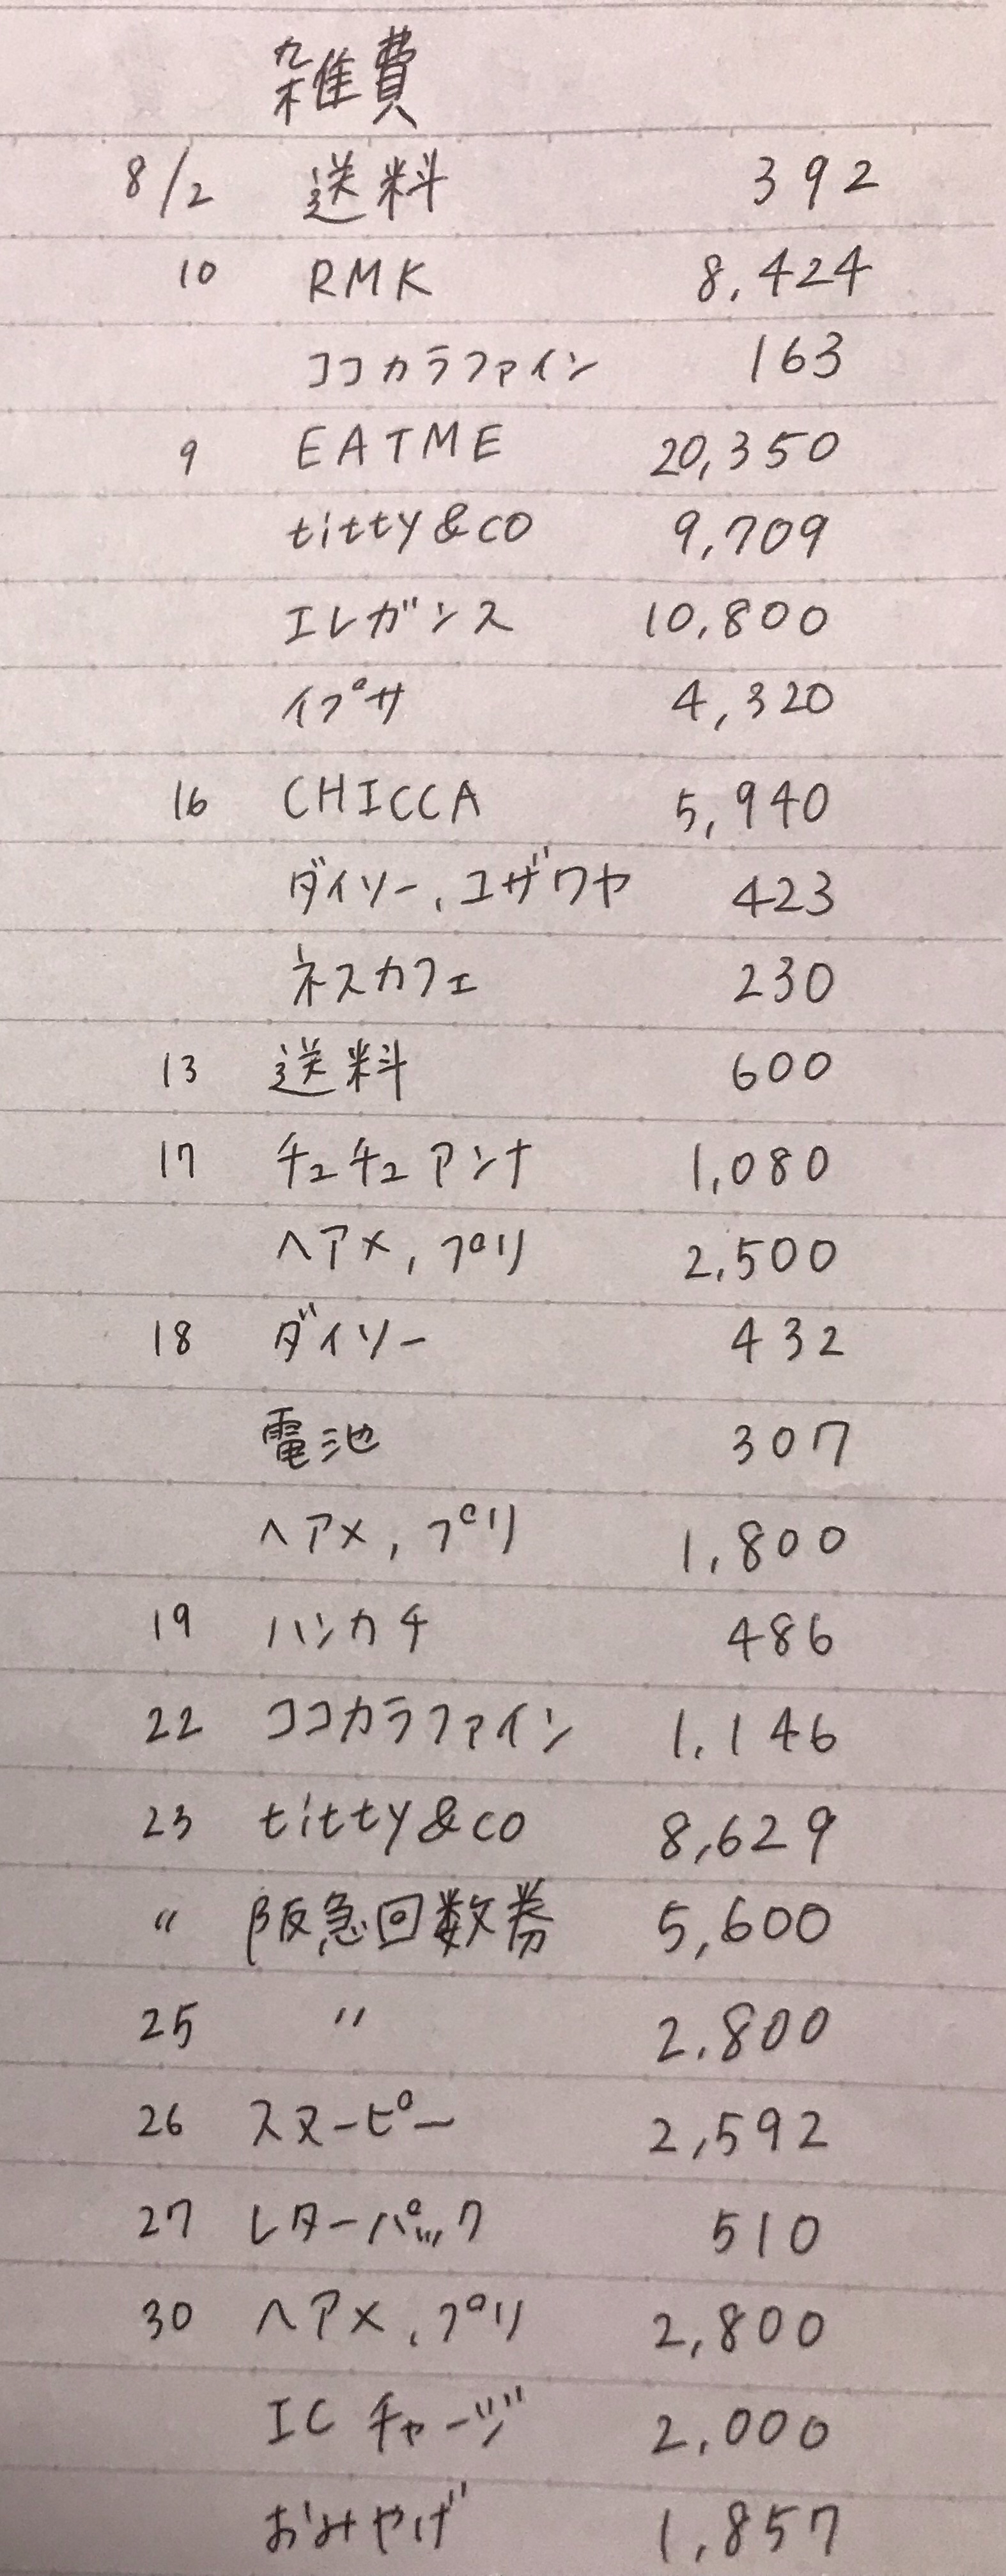 雑費
8/2 送料 392
10 RMK 8,424
ココカラファイン 163
9 EATME 20,350
titty&co 9,709
エレガンス 10,800
イプサ 4,320
16 CHICCA 5,940
ダイソー,ユザワヤ 423
ネスカフェ 230
13 送料 600
17 チュチュアンナ 1,080
ヘアメ,プリ 2,500
18 ダイソー 432
電池 307
ヘアメ,プリ 1,800
19 ハンカチ 486
22 ココカラファイン 1,146
23 titty&co 8,629
〃 阪急回数券 5,600
25 〃 2,800
26 スヌーピー 2,592
27 レターパック 510
30 ヘアメ,プリ 2,800
ICチャージ 2,000
おみやげ 1,857